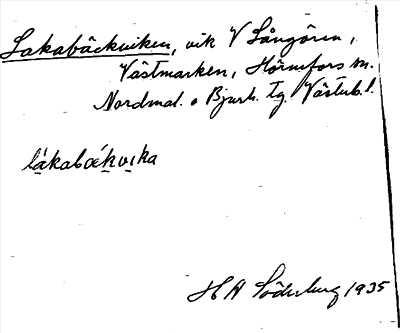 Lakabäckviken, vik V Långören,
Västmarken, Hörnefors sn.
Nordmal. o Bjurh. tg. Västerb. l.
lákabækvika
H A Söderberg 1935